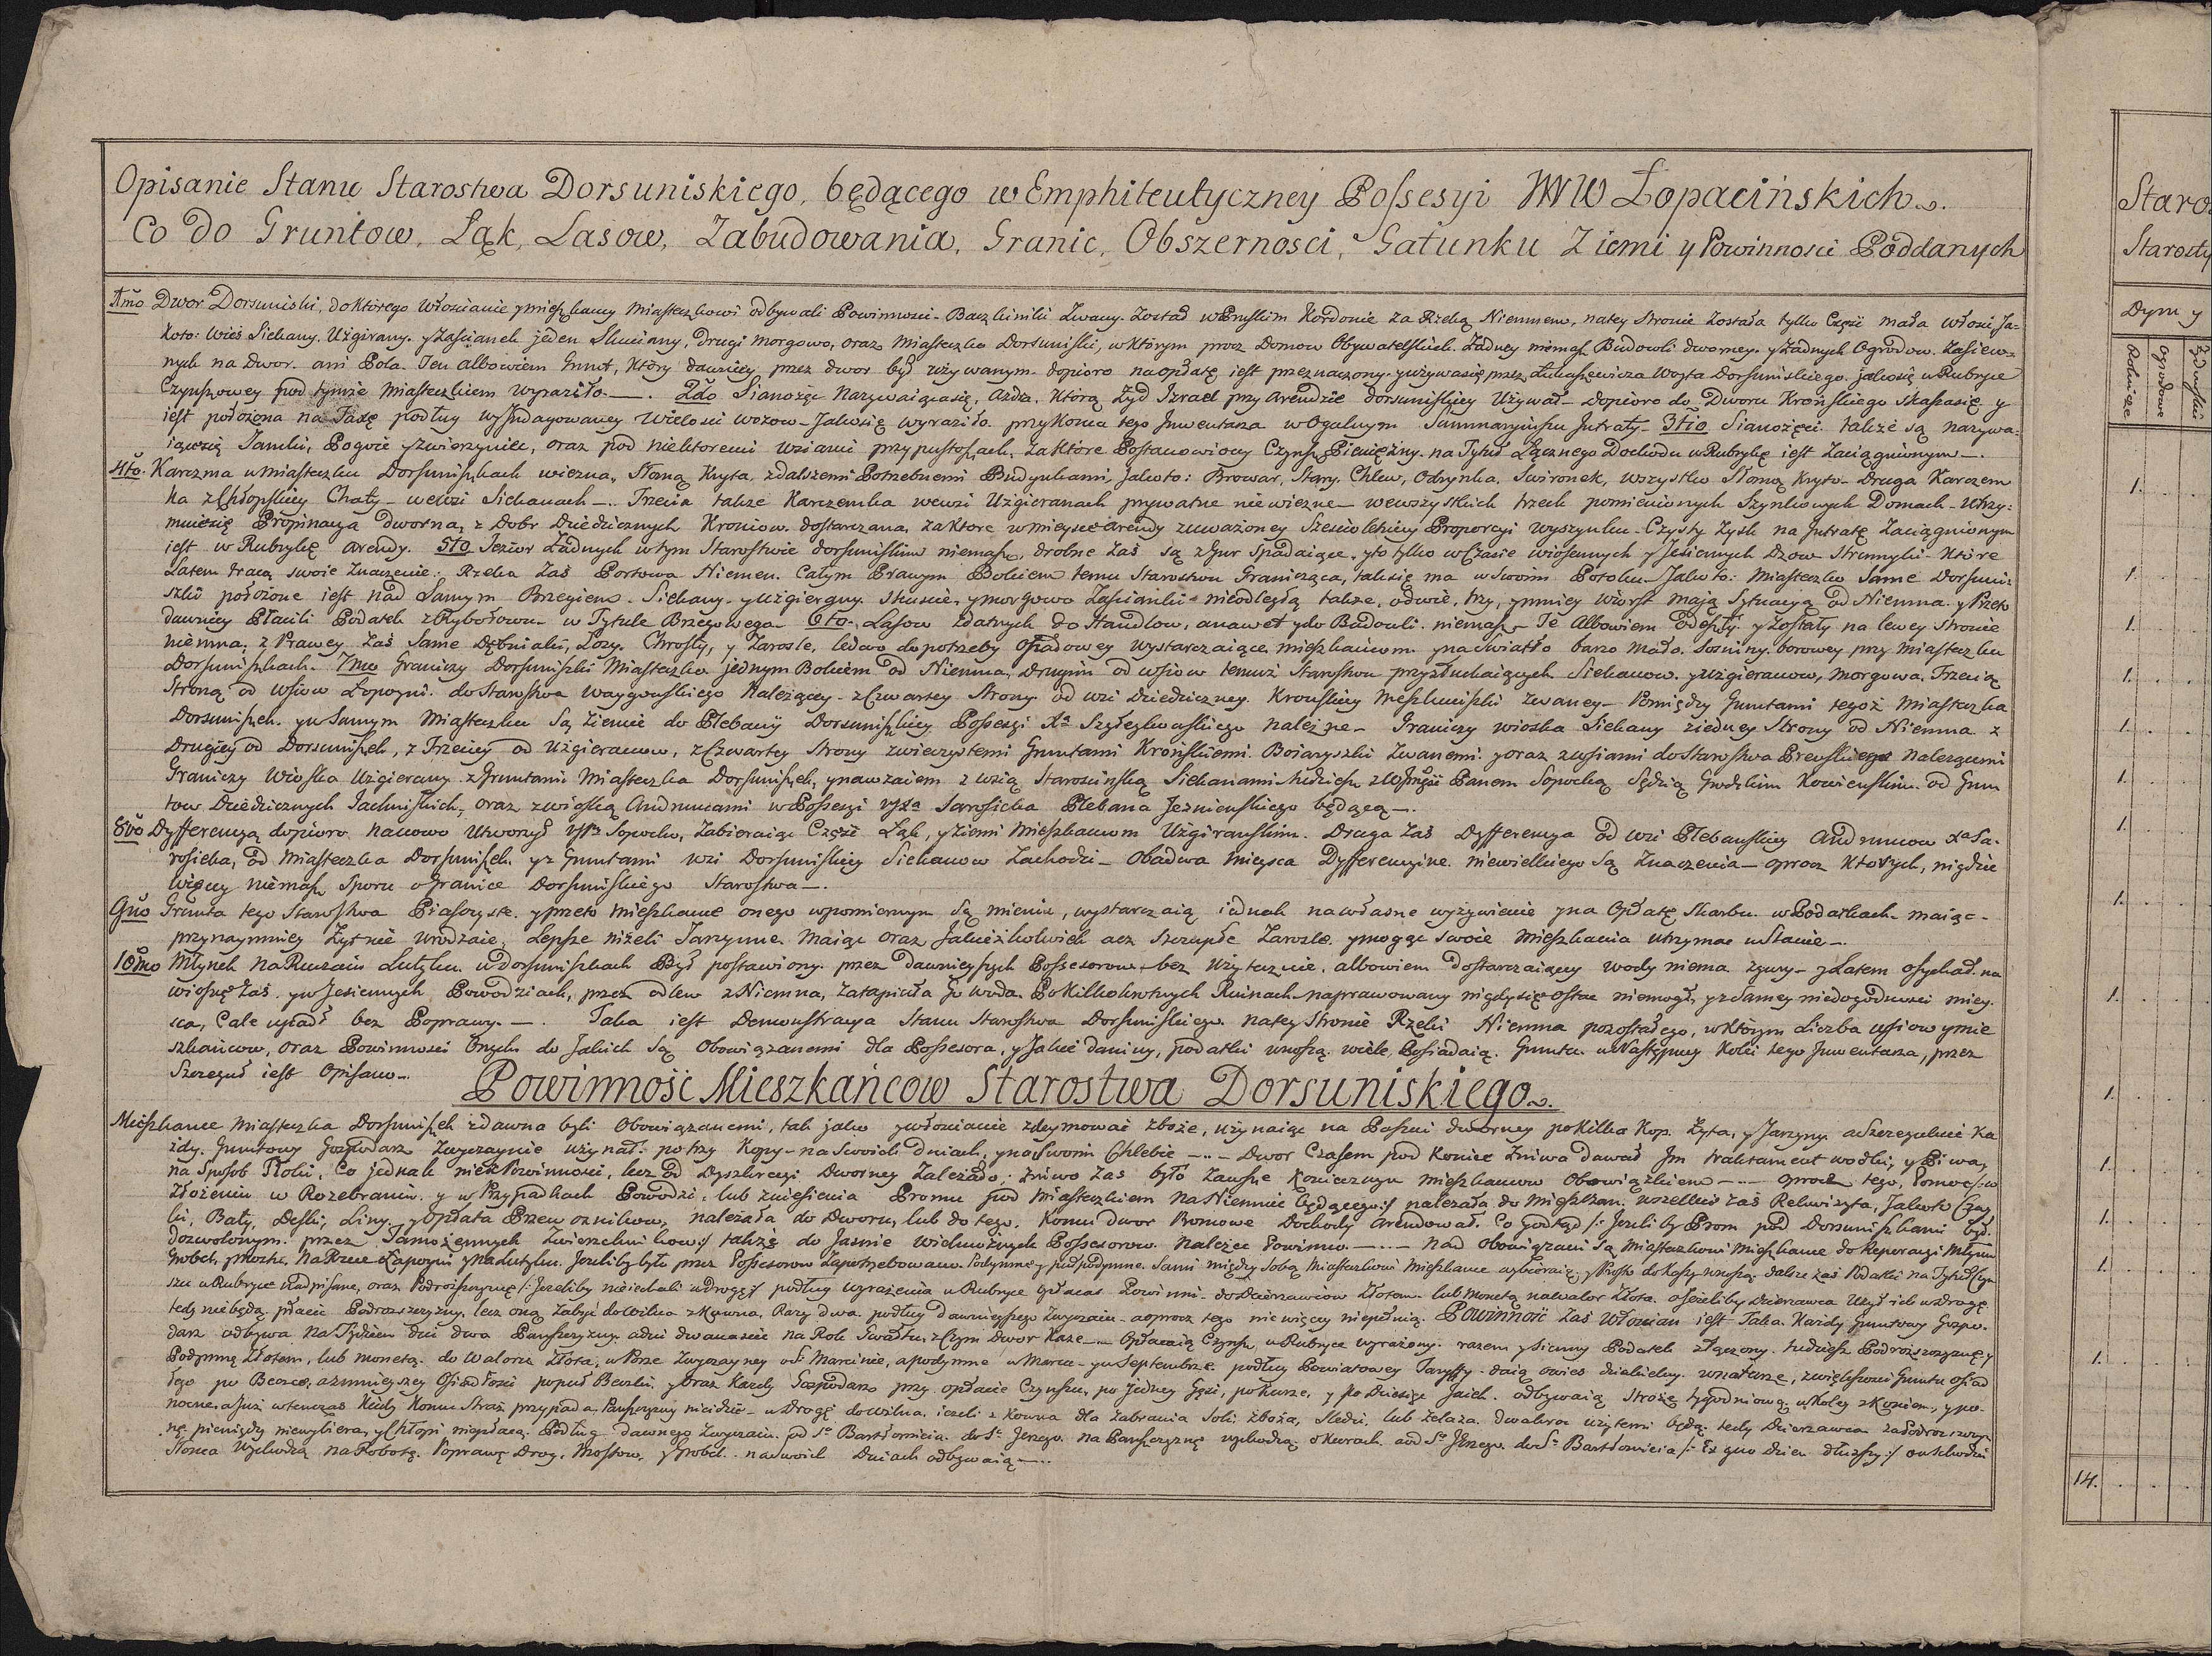 Opisanie Stanu Starostwa Dorsuniskiego, będącego w Emphiteutyczney Possesyi WW Łopacińskich.
Co do Gruntow, Łąk, Lasow, Zabudowania, Granic, Obszernosci, Gatunku Ziemi y Powinnosci Poddanych
1mo Dwor Dorsuniski, do ktorego Włoscianie y mieszkancy Miasteczkowi odbywali Powinnosci Zwany. Został w Pruskim Kordonie za Rzeką Niemnem, na tey stronie została tylko Część mała włosci, Ja-
koto: Wieś Siekany. Użgirany. y Zaścianek jeden Skuciany, drugi Morgowo, oraz Miasteczko Dorsuniski, w ktorym procz Domow Obywatelskich. Żadney niemasz Budowli dworney. y Żadnych Ogrodow. Zasiew-
nych na Dwor. ani Pola. Ten albowiem Grunt, Ktory dawniey przez dwor był używanym. dopioro na opłatę iest przeznaczony. y używa się przez Łukaszewicza Woyta Dorsuniskiego. jako się w Rubryce
Czynszowey pod tymże Miasteczkiem wyraziło. 2do Sianożęć Nazywaiąca się, Azdra. Którą Żyd Izrael przy Arendzie dorsuniskiey Używał. Dopioro do Dworu Krońskiego skasza się y
iest położona na Taxę podług wielosci wozow. Jako się wyraziło. przy Koncu tego Inwentarza w Ogulnym Summaryuszu Intraty. 3tio Sianożęci. także są nazywa-
iące się Zamki, Pogoie y Zwierzyniec, oraz pod niektoremi wsiami przypustoszach. Za ktore Postanowiony Czynsz Pieniężny. na Tytuł Łącznego Dochodu w Rubrykę iest Zaciągnionym.
4to. Karczma w Miasteczku Dorsuniszkach wiezna, Słomą Kryta, z dalszemi Potrzebnemi Budynkami, Jakoto: Browar, Stary. Chlew, Odrynka, Swironek, wszystko Słomą Kryto. Druga Karczem
ka z Chłopskiey Chaty we wsi Siekanach. Trzecia także Karczemka we wsi Użgieranach prywatne niewiezne. we wszystkich trzech pomienionych Szynkownych Domach. Utrzy-
muie się Propinacya dworna, z Dobr Dziedzicznych Kroniow. dostarczana, za ktore w mieysce arendy zuważoney Szescioletniey Proporcyi wyszynku. Czysty Zysk na Intratę Zaciągnionym
iest w Rubrykę Arendy. 5to Jeziór Żadnych w tym Starostwie dorsuniskim niemasz, drobne Zas są z Gur Spadaiące. y to tylko w Czasie wiosennych y Jesiennych Dżow Strumyki. Które
Latem tracą swoie Znaczenie. Rzeka Zaś Portowa Niemen. Całym Prawym Bokiem temu Starostwu Graniczące, tak się ma w Swoim Potoku. Jakoto: Miasteczko Same Dorsuni-
szki położone iest nad Samym Brzegiem. Siekany. y Użgierany. Skucie, y morgowo Zascianki nieodległą także, o dwie, trzy, y mniey wiorst maią Sytuacyą od Niemna. y Przeto
dawniey Płacili Podatek z Rybołowu. w Tytule Brzegowego. 6to. Lasow zdatnych do Handlow, a nawet y do Budowli. niemasz. Te Albowiem odeszły. y Zostały na lewey stronie
niemna, z Prawey Zaś Same Dębniaki, Łozy. Chrosty, y Zarosle, ledwo do potrzeby Opałowey wystarczaiące mieszkańcom. y na Swiatło barzo mało. Sosniny. borowey przy Miasteczku
Dorsuniszkach. 7mo Graniczy Dorsuniszki Miasteczko jednym Bokiem od Niemna, drugim od wsiow temuż Starostwu przysłuchaiących Siekanow. y Użgieranow, Morgowa. Trzecią
Stroną od wsiow do Starostwa Należącey. z Czwartey Strony od wsi Dziedziczney. Krońskiey Zwaney. Pomiędzy Gruntami tegoż Miasteczka
Dorsuniszek. y w Samym Miasteczku Są Ziemie do Plebanij Dorsuniszkiey Possesyi Xa należne. Graniczy wioska Siekany z iedney Strony od Niemna z
Drugiey od Dorsuniszek, z Trzeciey od Użgieranow, z Czwartey Strony z wieczystemi Gruntami Krońskiemi. Boiaryszki Zwanemi. y oraz z wsiami do Starostwa Należącemi
Graniczy Wioska Użgierany. z Gruntami Miasteczka Dorsuniszek, y nawzaiem z wsią Starościnską Siekanami. tudziesz Panem Sopocką Sędzią Grodzkim Kowieńskim. od Grun
tow Dziedzicznych, oraz z wioską Andruncami w Possesyi Plebana Jeznieńskiego będącą.
8vo Dyfferencyą dopioro na nowo Utworzył Sopocko, Zabieraiąc Część Łąk, y Ziemi Mieszkancom Użgirańskim. Druga Zaś Dyfferencya od wsi Plebańskiey Xa Sa-
rosieka, od Miasteczka Dorsuniszek. y z Gruntami wsi Dorsuniskiey Siekanow Zachodzi. Obadwa mieysca Dyfferencyine. niewielkiego Są Znaczenia. oprocz ktorych, nigdzie
więcey niemasz Sporu o Granice Dorsuniskiego Starostwa.
9no Grunta tego Starostwa Piasczyste. y przeto Mieszkańce onego w pomiernym Są mieniu, wystarczaią iednak na własne wyżywienie y na Opłatę Skarbu. w Podatkach. maiąc
przynaymniey Żytnie urodzaie, Lepsze niżeli Jarzynne. Maiąc oraz Jakieżkolwiek acz Szczupłe Zarosle. y mogąc swoie Mieszkania utrzymac w Stanie.
10mo Młynek Na Ruczaiu Lutyku. w Dorsuniszkach Był postawiony. przez dawnieyszych Possesorow bez Użytecznie, albowiem dostarczaiącey wody niema. y Latem osychał. na
wiosnę Zaś. y w Jesiennych Powodziach, przez odlew z Niemna, Zatapiała Go woda. Po Kilkokrotnych Ruinach naprawowany nigdy się ostac niemogł, y z Samey niedogodnosci miey-
sca, Cale upadł bez Poprawy. Taka iest Demonstracya Stanu Starostwa Dorsuniskiego. na tey Stronie Rzeki Niemna pozostałego, w którym Liczba wsiow y mie
szkańcow, oraz Powinnosci Onych. do Jakich są Obowiązanemi dla Possesora, y Jakie daniny, podatki wnoszą. wiele Posiadaią. Gruntu. w Następney Kolei tego Inwentarza, przez
Szczeguł iest Opisano.
Powinność Mieszkańcow Starostwa Dorsuniskiego.
Mieszkance Miasteczka Dorsuniszek zdawna byli Obowiązanemi, tak jako y włoscianie zdeymować zboże, użynaiąc na Poszni dworney po Kilka Kop. Żyta, y Jarzyny. a Szczegulnie Ka
żdy. Gruntowy Gospodarz Zwyczaynie użynał. po trzy Kopy na Swoich dniach, y na Swoim Chlebie. Dwor Czasem pod Koniec Żniwa dawał Im traktament wodki, y Piwa,
na Sposob Tłoki, Co jednak nie z Powinnosci, lecz od Dyskrecyi Dworney Zależało; Żniwo Zaś było Zawsze Koniecznym Mieszkancow Obowiązkiem. oprocz tego, Pomoc w
Złożeniu w Rozebraniu. y w Przypadkach Powodzi, lub zniesienia Promu pod Miasteczkiem Na Niemnie będącego należała do Mieszkan. wszelkie zaś Rekwizyta, Jakoto Czay
ki, Baty, Deski, Liny. y Opłata Przewoznikow, należała do Dworu, lub do tego. Komu dwor Promowe Dochody arendował. Jezeliby Prom pod Dorsuniszkami był.
dozwolonym. przez Tamożennych Zwierzchnikow takżę do Jasnie Wielmożnych Possesorow. Należec Powinno. Nad obowiązani są Miasteczkowi Mieszkance do Reperacyi Młynu
Grobel, y Mostu, Na Rzece Łapoyni y Jezeliby było przez Possesorow Zapotrzebowano. Podymne y Sami między Sobą Miasteczkowi Mieszkance wybieraią, y Prosto do Kassy wnoszą dalsze zaś Podatki na Tytuł Czyn
szu w Rubryce Nadpisane, oraz Podroszczyznę Jezeliby niejechali w drogę podług wyrażenia w Rubryce opłacac Powinni. do Dzierzawcow Złotem. lub Monetą na walor Złota. a Jeżeliby Dzierzawca Użył ich w drogę
tedy niebędą płacic Podrozszczyzny, lecz oną Zabyć do Wilna z Kowna, Razy dwa. podług dawnieyszego Zwyczaiu. a oprocz tego nie więcey niepełnią. Powinność zaś Włoscian iest Taka. Każdy Gruntowy Gospo-
darz odbywa Na Tydzien dni dwa Panszczyzny. a dni dwanascie na Rok Gwałtu, z Czym Dwor Każe. Opłacaią Czynsz w Rubryce wyrażony. razem y Sienny Podatek złączony. tudziesz Podrozszczyznę y
Podymne Złotem, lub monetą. do Waloru Złota, w Porze Zwyczayney o St Marcinie, a podymne w Marcu y w Septembrze podług Powiatowey Taryffy. daią owies, z większosci Gruntu osiad
łego po Beczce, a z mnieyszey Osiadłości popuł Beczki, y oraz Każdy Gospodarz przy opłacie Czynszu, po jedney Gęsi, po kurze, y po Dziesięc Jaiek. odbywaią Strożę tygodniową, w Koley z Koniem, y po-
nocne, a Już wtenczas Kiedy Komu Straż przypada, Panszczyzny nieidzie. w Drogę do Wilna, ieżeli z Kowna dla Zabrania Soli, Zboża, Sledzi, lub Żelaza. dwakroc użytemi będą, tedy Dzierzawca za
nę pieniędzy niewybiera, y Chłopi niepłacą. Podług dawnego Zwyczaiu od St Bartłomieia do St Jerzego. na Panszczyznę wychodzą o Kurach. a od St Jerzego do St Bartłomieia Ex quo dzien dłuższy o wschodzie
Słonca Wychodzą na Robotę. Poprawę Drog, Mostow, y Grobel. na swoich Dniach odbywaią.
Staro
Starosty
Dym y
Rolnicze
Ogrodowe
Żydowskie
1.
1.
1.
1.
1.
1.
1.
1.
1.
1.
1.
1.
1.
1.
14.